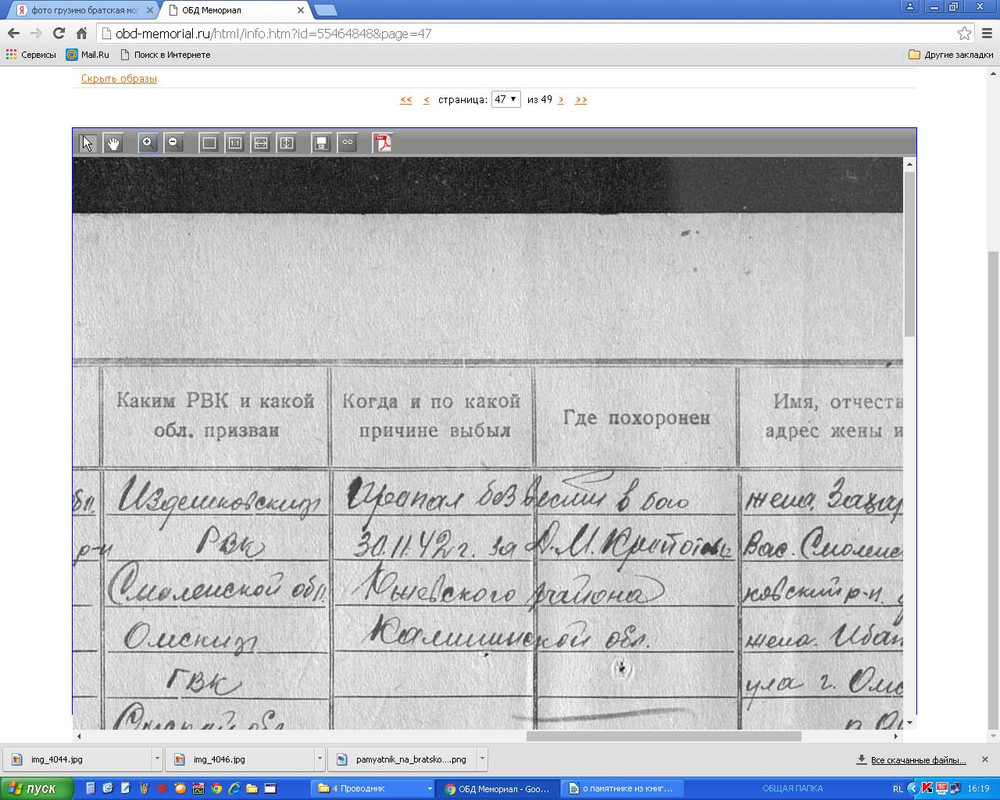 фото грузино братская мо
ОБД Мемориал
obd-memorial.ru/html/info.htm?id=55464848&page=47
Сервисы Mail.Ru Поиск в Интернете Другие закладки
Скрыть образы
<< < страница: 47 из 49 > >>
Каким РВК и какой обл. призван
Когда и по какой причине выбыл
Где похоронен
Имя, отчеств
адрес жены и
обл. Издешковский Пропал без вести в бою жена, Захар
р-н РВК 30.11.42 г. за Вас. Смоленс
Смоленской обл. района ковский р-н.
Омский Калининской обл. жена. Иван
ГВК ула г. Омс
Омской обл.
img_4044.jpg img_4046.jpg pamyatnik_na_bratsko....png Все скачанные файлы...
пуск 4 Проводник ОБД Мемориал - Goo... о памятнике из книг... ОБЩАЯ ПАПКА RL 16:19